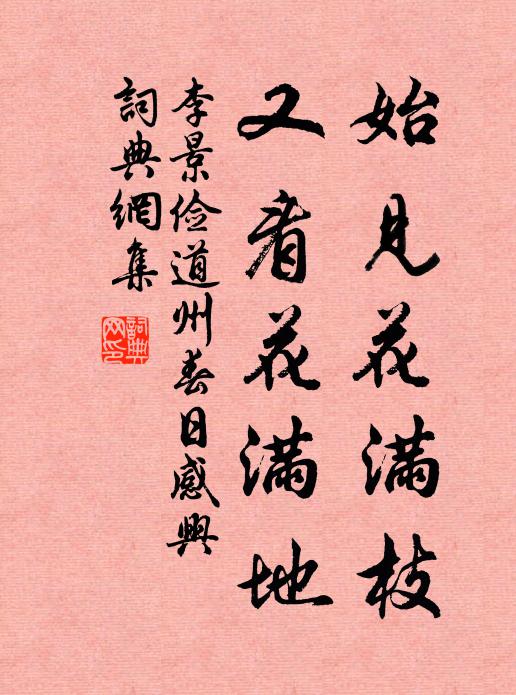 始見花滿枝
又看花滿地
李景俭道州春日感興
詞典網集
詞典
网印